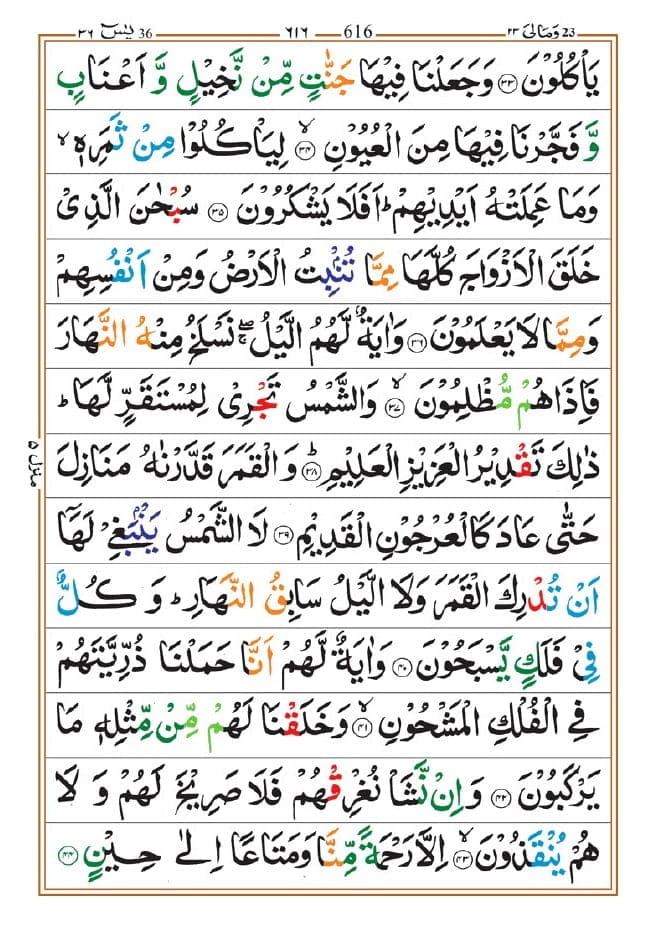 36 یٰسٓ ۳۶ 616 ۶۱۶ 23 وَمَالِیَ ۲۳
یَاْكُلُوْنَ ۝۳۳ وَجَعَلْنَا فِیْهَا جَنّٰتٍ مِّنْ نَّخِیْلٍ وَّ اَعْنَابٍ
وَّ فَجَّرْنَا فِیْهَا مِنَ الْعُیُوْنِ ۙ۝۳۴ لِیَاْكُلُوْا مِنْ ثَمَرِهٖ ۙ
وَمَا عَمِلَتْهُ اَیْدِیْهِمْ ؕ اَفَلَا یَشْكُرُوْنَ ۝۳۵ سُبْحٰنَ الَّذِیْ
خَلَقَ الْاَزْوَاجَ كُلَّهَا مِمَّا تُنْۢبِتُ الْاَرْضُ وَمِنْ اَنْفُسِهِمْ
وَمِمَّا لَا یَعْلَمُوْنَ ۝۳۶ وَاٰیَةٌ لَّهُمُ الَّیْلُ ۖۚ نَسْلَخُ مِنْهُ النَّهَارَ
فَاِذَا هُمْ مُّظْلِمُوْنَ ۙ۝۳۷ وَالشَّمْسُ تَجْرِیْ لِمُسْتَقَرٍّ لَّهَا ؕ
ذٰلِكَ تَقْدِیْرُ الْعَزِیْزِ الْعَلِیْمِ ؕ۝۳۸ وَ الْقَمَرَ قَدَّرْنٰهُ مَنَازِلَ
حَتّٰی عَادَ كَالْعُرْجُوْنِ الْقَدِیْمِ ۝۳۹ لَا الشَّمْسُ یَنْۢبَغِیْ لَهَاۤ
اَنْ تُدْرِكَ الْقَمَرَ وَلَا الَّیْلُ سَابِقُ النَّهَارِ ؕ وَ كُلٌّ
فِیْ فَلَكٍ یَّسْبَحُوْنَ ۝۴۰ وَاٰیَةٌ لَّهُمْ اَنَّا حَمَلْنَا ذُرِّیَّتَهُمْ
فِی الْفُلْكِ الْمَشْحُوْنِ ۙ۝۴۱ وَخَلَقْنَا لَهُمْ مِّنْ مِّثْلِهٖ مَا
یَرْكَبُوْنَ ۝۴۲ وَاِنْ نَّشَاْ نُغْرِقْهُمْ فَلَا صَرِیْخَ لَهُمْ وَ لَا
هُمْ یُنْقَذُوْنَ ۙ۝۴۳ اِلَّا رَحْمَةً مِّنَّا وَمَتَاعًا اِلٰی حِیْنٍ ۝۴۴
منزل ۵